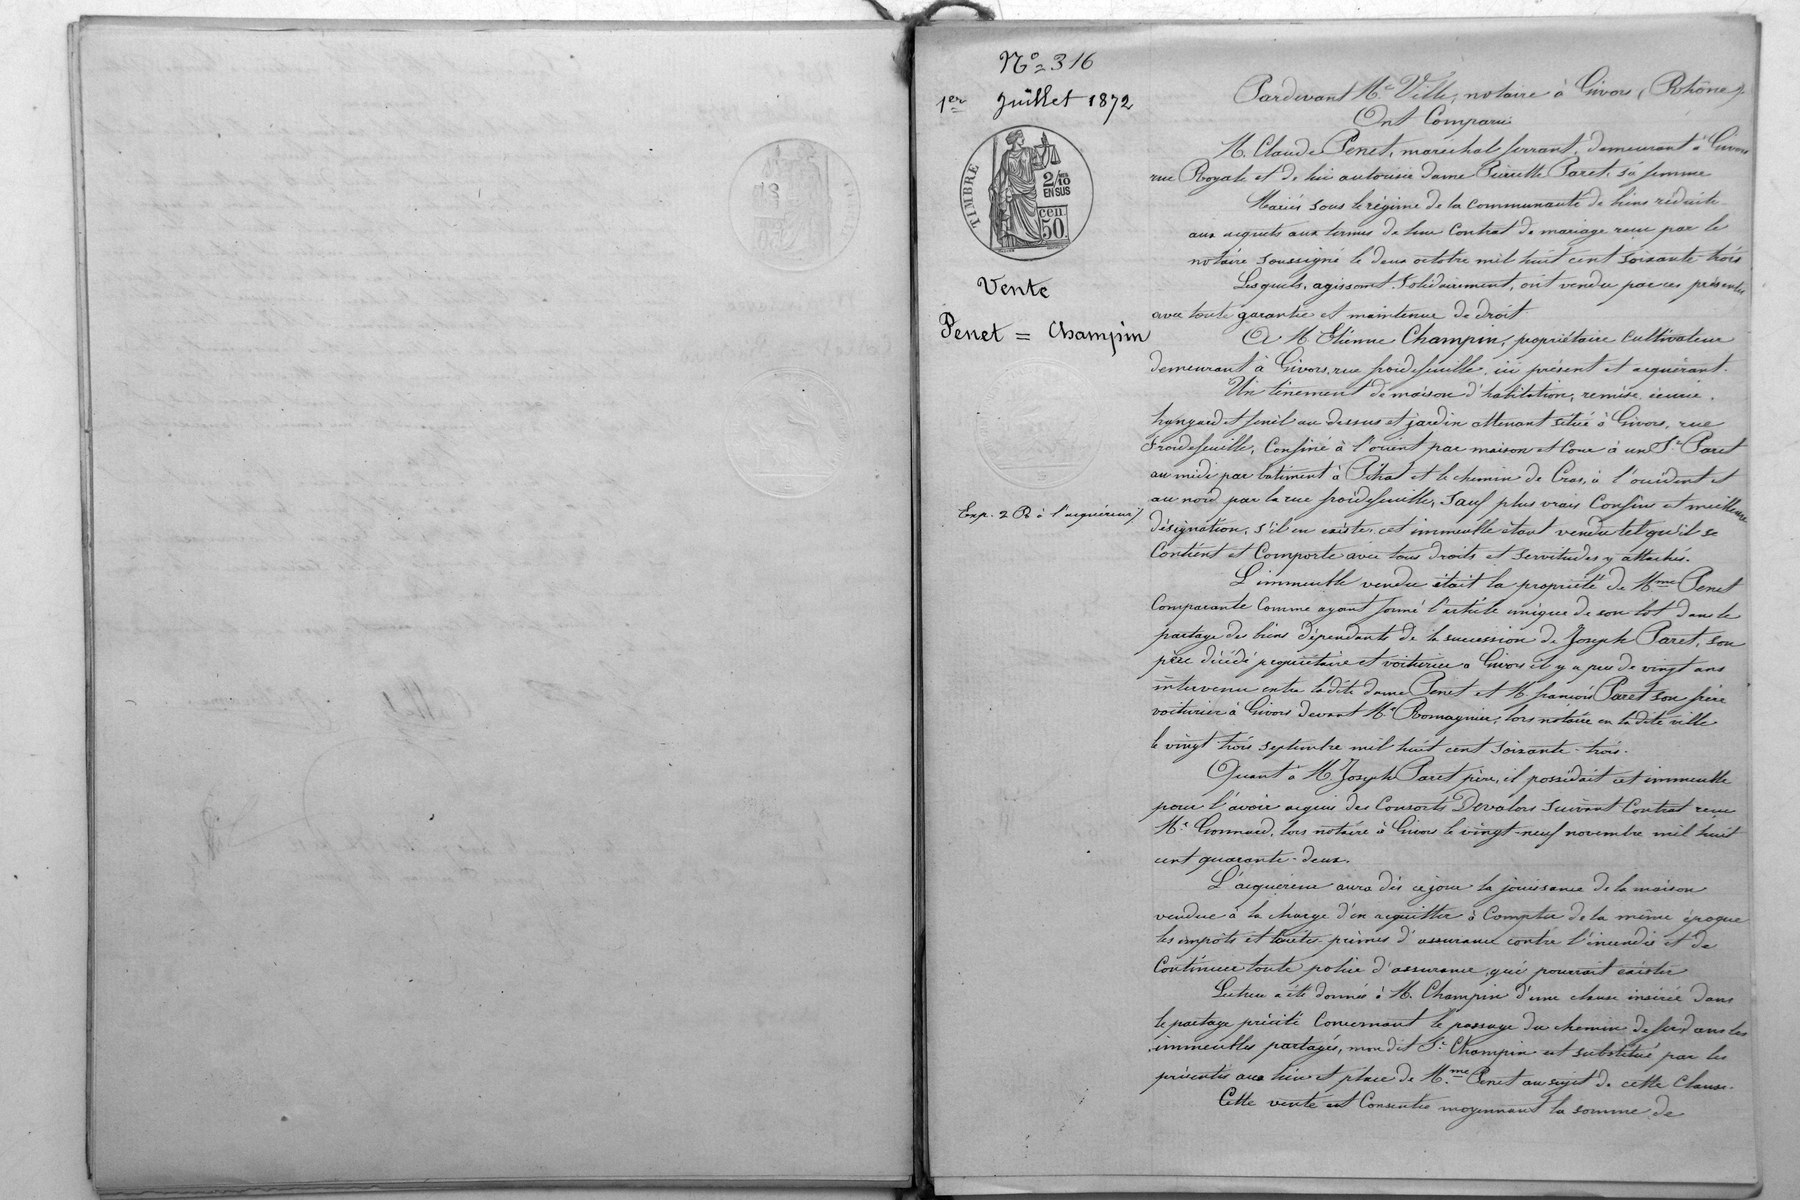 N° 316
1er Juillet 1872
TIMBRE
2/10
EN SUS
cen
50.
Vente
Penet = Champin
Exp. 2 R à l'acquéreur
Pardevant Me Ville, notaire à Givors (Rhône).
Ont Comparu
M. Claude Penet, marechal ferrant, demeurant à Givors
rue Royale et de lui autorisée dame Pierrette Paret, sa femme
Mariés sous le régime de la communauté de biens réduite
aux acquets aux termes de leur Contrat de mariage reçu par le
notaire soussigné le deux octobre mil huit cent soixante-trois
Lesquels, agissant solidairement, ont vendu par ces présentes
avec toute garantie et maintenue de droit.
A M. Etienne Champin, propriétaire cultivateur
demeurant à Givors, rue froidefeuille, ici présent et acquérant.
Un tenement de maison d'habitation, remise, écurie,
hangard et fenil au dessus et jardin attenant situé à Givors, rue
Froidefeuille, Confiné à l'orient par maison et Cour à un Sr Paret
au midi par batiment à Pitrat et le chemin de Cras, à l'occident et
au nord par la rue froidefeuille, Sauf plus vrais Confins et meilleure
désignation, s'il en existe, cet immeuble étant vendu tel qu'il se
Contient et Comporte avec tous droits et servitudes y attachés.
L'immeuble vendu était la propriété de Mme Penet
Comparante Comme ayant formé l'article unique de son lot dans le
partage des biens dépendants de la succession de Joseph Paret, son
père décédé propriétaire et voiturier à Givors il y a près de vingt ans
intervenu entre la dite dame Penet et M. françois Paret son frère
voiturier à Givors devant Me Romagnier, lors notaire en la dite ville
le vingt trois septembre mil huit cent soixante-trois.
Quant à M. Joseph Paret père, il possédait cet immeuble
pour l'avoir acquis des Consorts Devalors suivant Contrat reçu
Me Gonnard, lors notaire à Givors le vingt-neuf novembre mil huit
cent quarante-deux.
L'acquéreur aura dès ce jour la jouissance de la maison
vendue à la charge d'en acquitter à Compter de la même époque
les impôts et toutes primes d'assurance contre l'incendie et de
Continuer toute police d'assurance, qui pourrait exister
Lecture a été donnée à M. Champin d'une clause insérée dans
le partage précité Concernant le passage du chemin de fer dans les
immeubles partagés, mon dit Sr Champin est substitué par les
présentes aux lieu et place de Mme Penet au sujet de cette Clause.
Cette vente est Consentie moyennant la somme de